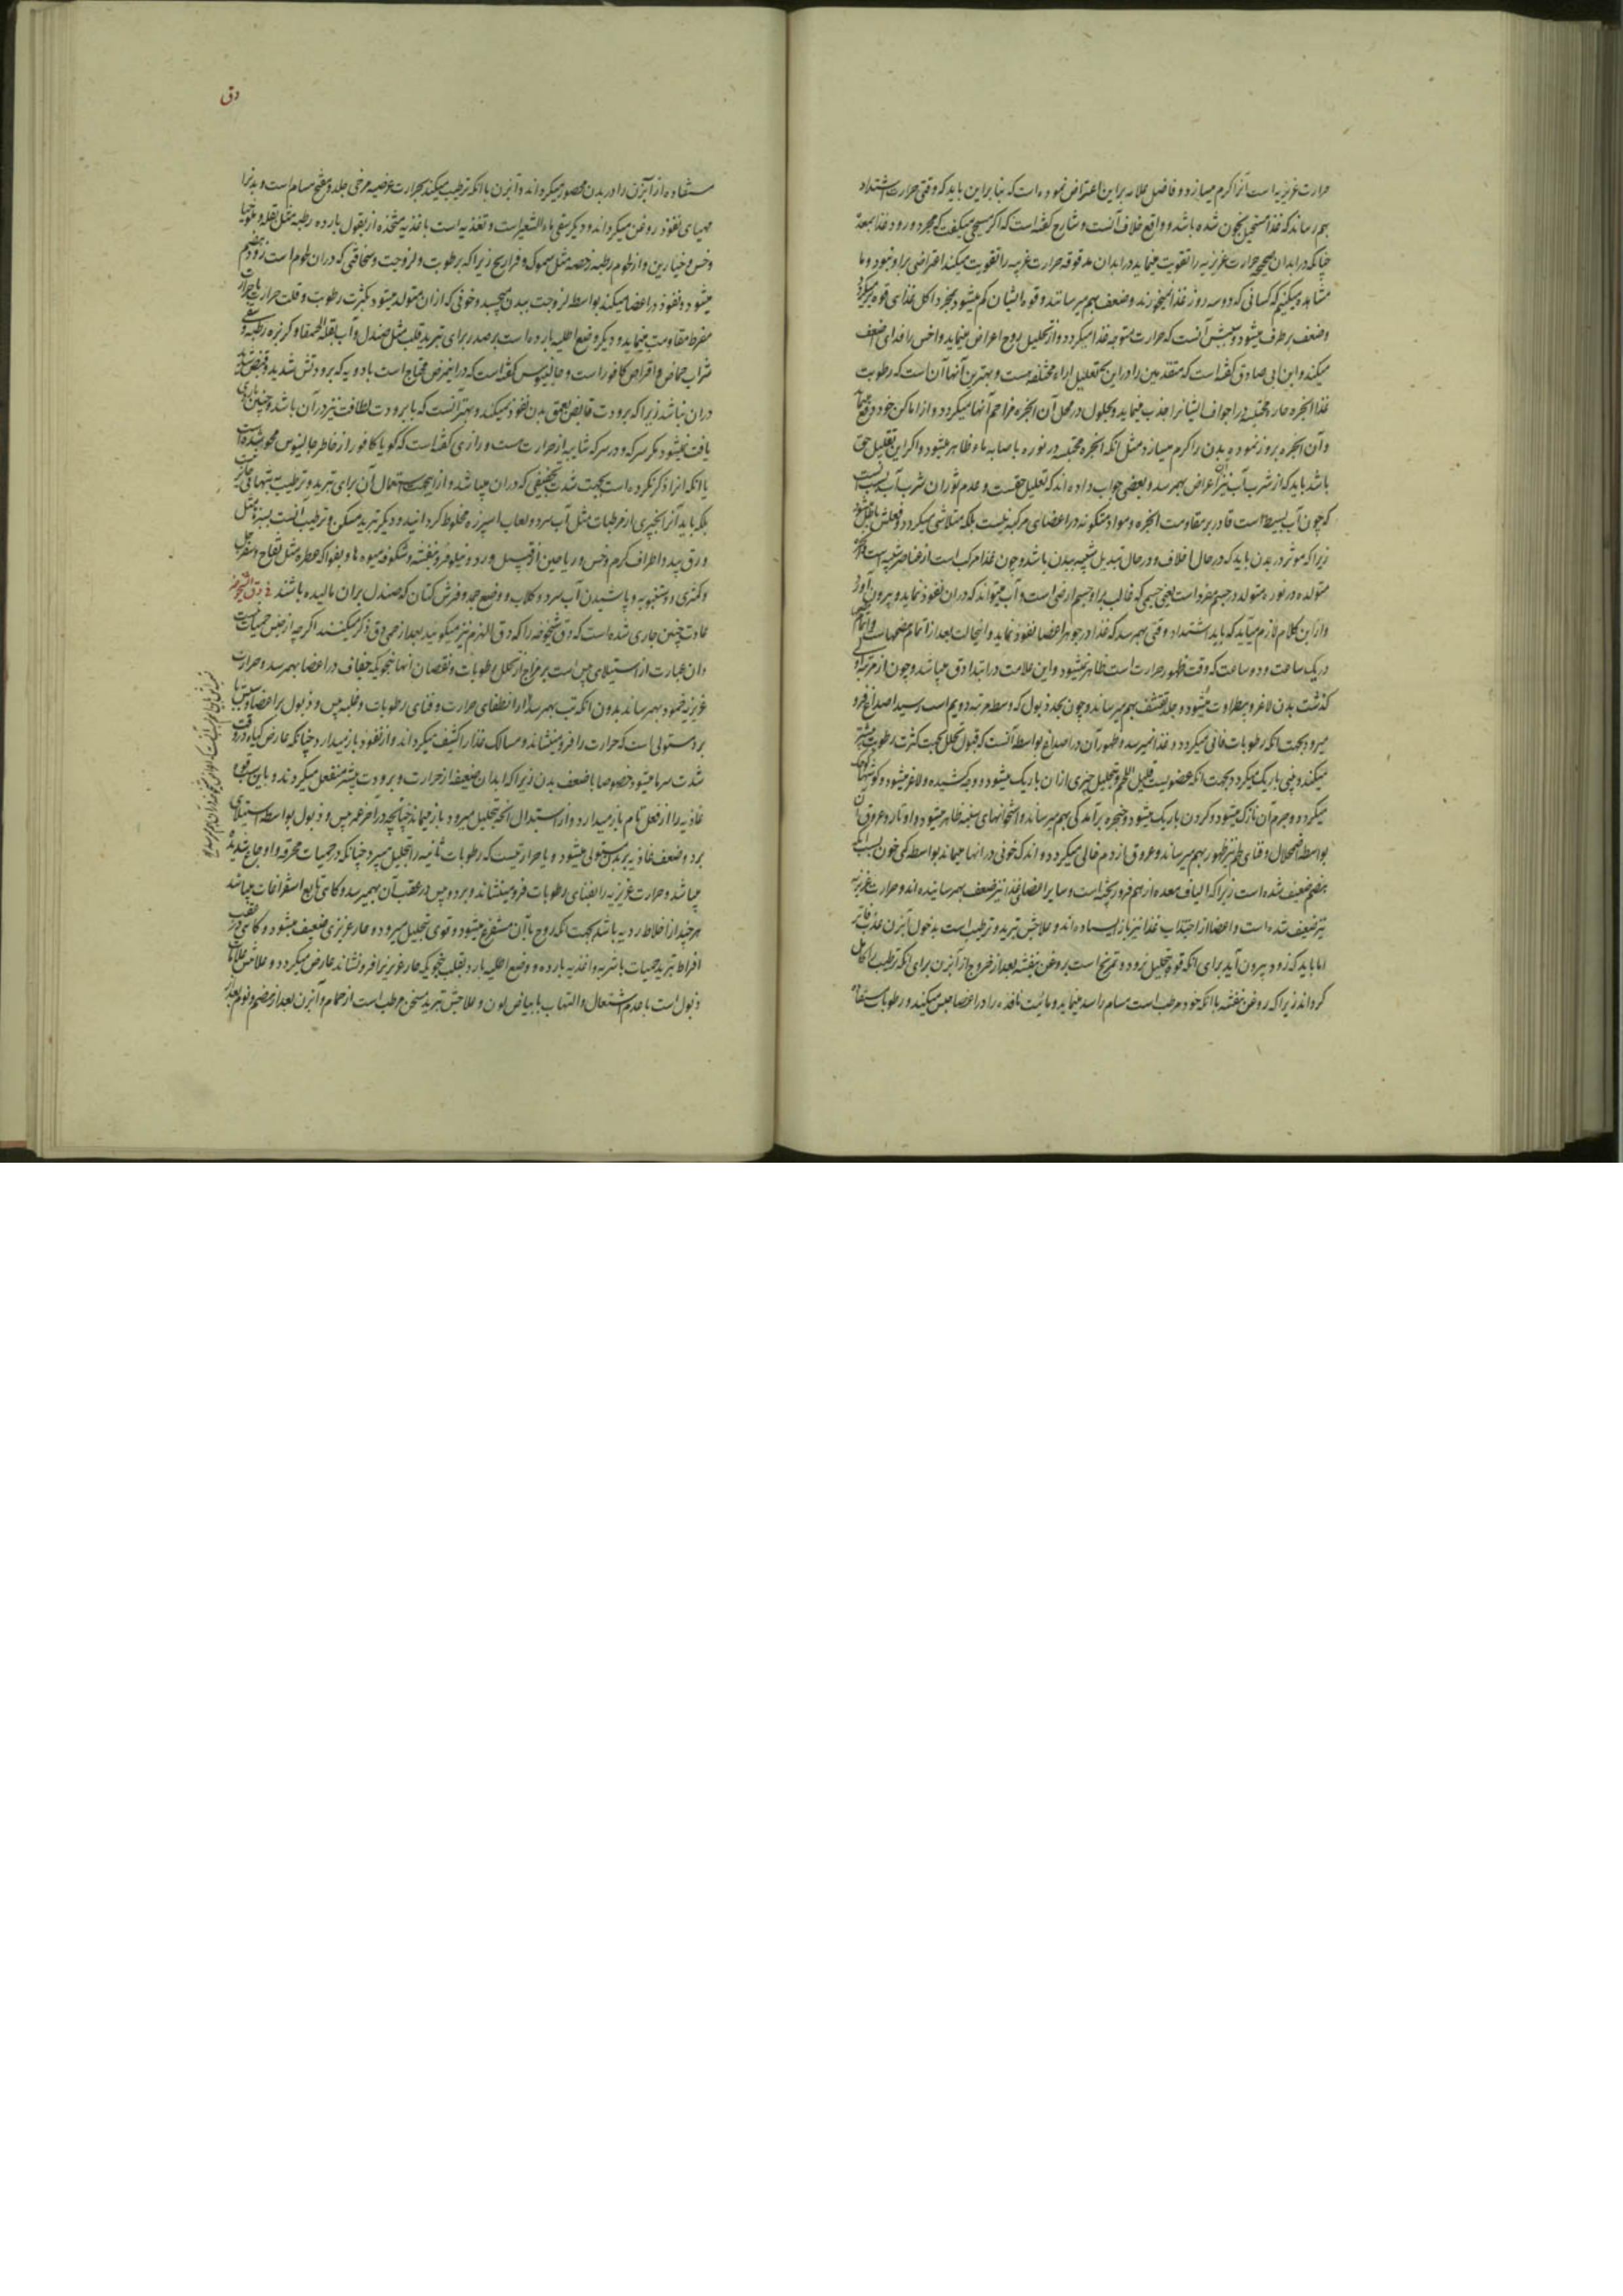 حرارت غریزیه است آنرا کرم میسازد و فاضل علامه براین اعتراض نموده است که بنا براین باید که وقتی حرارت اشتداد
بهم رساند که غذا مستحیل بخون شده باشد و واقع خلاف آنست و شارح گفته است که اگر مسیحی میگفت که بمجرد ورود غذا بمعده
چنانکه در ابدان صحیحه حرارت غریزیه را تقویت مینماید در ابدان مدقوقه حرارت غریبه را تقویت میکند اعتراضی براو نبود و ما
مشاهده میکنیم که کسانی که دو سه روز غذا نمیخورند وضعف بهم میرسانند و قوه ایشان کم میشود بمجرد اکل غذا قوه
وضعف برطرف میشود و سببش آنست که حرارت متوجه غذا میگردد و از تحلیل روح اعراض مینماید و اخس را فدای اضعف
میکند و ابن ابی صادق گفته است که متقدمین را در این تعلیل اراء مختلفه هست و بهترین آنها آن است که رطوبت
غذا ابخره حاره محتبسه در اجواف ایشانرا جذب مینماید و بحلول در محل آن ابخره مزاحم آنها میگردد و از اماکن خود دفع
و آن ابخره بروز نموده بدن را کرم میسازد مثل آنکه ابخره محتبسه در نوره باصابه ماء ظاهر میشود و اگر این تعلیل حق
باشد باید که از شرب آب نیز این اعراض بهمرسد و بعضی جواب داده اند که تعلیل حقست و عدم ثوران شرب آب
که چون آب بسیط است قادر بر مقاومت ابخره و مواد متکونه در اعضای مرکبه نیست بلکه متلاشی میگردد و فعلش باطل
زیرا که موثر در بدن باید که در حال خلاف و در حال تبدیل شبیه ببدن باشد و چون غذا مرکب است از عناصر
متولده در نوره متولد در جسم مفرد است یعنی جسمی که غالب براو جسم ارضی است و آب میتواند که دران نفوذ نماید و بیرون
و از این کلام لازم میآید که باید اشتداد وقتی بهمرسد که غذا در جوهر اعضا نفوذ نماید و اینحالت بعد از اتمام هضمهاست
در یک ساعت و دو ساعت که وقت ظهور حرارت است ظاهر نمیشود و این علامت در ابتدا دق میباشد و چون از
گذشت بدن لاغر و بیطراوت میشود و جلد تقشف بهم میرساند و چون بحد ذبول که وسط مرتبه دویم است رسید اصداغ فرو
میرود بجهت آنکه رطوبات فانی میگردد و غذا نمیرسد و ظهور آن در اصداغ بواسطه آنست که قبول تحلل بجهت کثرت رطوبت بیشتر
میکند و بینی باریک میگردد بجهت آنکه عضویست قلیل اللحم و بتحلیل چیزی از ان باریک میشود و کشیده و لاغر میشود و گوشها
میگردد و جرم آن نازک میشود و گردن باریک میشود و حنجره برآمدگی بهم میرساند و استخوانهای سینه ظاهر میشود و اوتار و عروق
بواسطه اضمحلال و فنای لحم نیز ظهور بهم میرساند و عروق از دم خالی میگردد و اندک خونی در آنها میماند بواسطه کمی خون
هضم ضعیف شده است زیرا که الیاف معده از هم فرو ریخته است و سایر اعضای غذا نیز ضعف بهمرسانیده اند و حرارت غریزیه
نیز ضعیف شده است و اعضا از اجتذاب غذا نیز باز ایستاده اند و علاجش تبرید و ترطیب است بدخول آبزن عذب فاتر
اما باید که زود بیرون آید برای آنکه قوه بتحلیل نرود و تمریخ است بروغن بنفشه بعد از خروج از آبزن برای آنکه ترطیب را کامل
گرداند زیرا که روغن بنفشه با آنکه خود مرطب است مسام را سد مینماید و مائیت نافذه را در اعضا حبس میکند و رطوبات
دق
مستفاده از آبزن را در بدن محصور میگرداند و آبزن با آنکه ترطیب میکند بحرارت عرضیه مرخی جلد و مفتح مسام است و بدنرا
مهیای نفوذ روغن میگرداند و دیگر سقی ماء الشعیر است و تغذیه است باغذیه متخذه از بقول بارده رطبه مثل بقله و ملوخیا
و خس و خیارین و از لحوم رطبه رخصه مثل سموک و فراریج زیرا که برطوبت و لزوجت و سخافتی که دران لحوم است زود هضم
میشود و نفوذ در اعضا میکند بواسطه لزوجت ببدن میچسبد و خونی که ازان متولد میشود بکثرت رطوبت و قلت حرارت با حرارت
مفرط مقاومت مینماید و دیگر وضع اطلیه بارده است بر صدر برای تبرید قلب مثل صندل و آب بقلة الحمقاء و کزبره رطبه و سقی
شراب حماض و اقراص کافور است و جالینوس گفته است که در اینمرض محتاج است بادویه که برودتش شدید و قبض
دران نباشد زیرا که برودت قابض بعمق بدن نفوذ نمیکند و بهتر آنست که با برودت لطافت نیز در آن باشد و چنین
یافت نمیشود مگر سرکه و در سرکه شایبه از حرارت هست و رازی گفته است که گویا کافور از خاطر جالینوس محو شده است
یا آنکه انرا ذکر نکرده است بجهت شدت تجفیفی که دران میباشد و از اینجهت استعمال آن برای تبرید و ترطیب بتنهائی جایز نیست
بلکه باید آنرا بچیزی از مرطبات مثل آب سرد و لعاب اسپرزه مخلوط گردانید و دیگر تبرید مسکن و ترطیب آنست بسبزه مثل
ورق بید و اطراف کرم و خس و ریاحین از قبیل ورد و نیلوفر و بنفشه و شکوفه میوه ها و بفواکه عطره مثل تفاح و سفرجل
و کمثری و دستنبویه و پاشیدن آب سرد و گلاب و وضع جمد و فرش کتان که صندل بران مالیده باشند فی دق الشیخوخه
عادت چنین جاری شده است که دق شیخوخه را که دق الهرم نیز میگویند بعد از حمی دق ذکر میکنند اگر چه از جنس حمیات نیست
و ان عبارت از استیلای یبس است بر مزاج از تحلل رطوبات و نقصان انها بنحویکه جفاف در اعضا بهمرسد و حرارت
غریزیه خمود بهمرساند بدون آنکه تب بهمرسد از انطفای حرارت و فنای رطوبات و غلبه یبس و ذبول بر اعضا و سببش یا
برد مستولی است که حرارت را فرو مینشاند و مسالک غذا را کثیف میگرداند و از نفوذ باز میدارد چنانکه عارض گیاه در وقت
شدت سرما میشود خصوصا با ضعف بدن زیرا که ابدان ضعیفه از حرارت و برودت بیشتر منفعل میگردند و باین سبب قوه
غاذیه را از فعل تام باز میدارد و از استبدال آنچه بتحلیل میرود باز میماند چنانچه در آخر عمر یبس و ذبول بواسطه استیلای
برد و ضعف غاذیه بر بدن مستولی میشود و یا حرارتیست که رطوبات ثانیه را بتحلیل میبرد چنانکه در حمیات محرقه و اوجاع شدیده
میباشد و حرارت غریزیه را بفنای رطوبات فرو مینشاند و برد و یبس در عقب آن بهم میرسد و گاهی تابع استفراغات میباشد
هر چند از اخلاط ردیه باشد بجهت آنکه روح با آن مستفرغ میشود و قوی بتحلیل میرود و حار غریزی ضعیف میشود و گاهی در عقب
افراط تبرید حمیات باشربه و اغذیه بارده و وضع اطلیه بارد بقلب بنحویکه حار غریزیرا فرو نشاند عارض میگردد و علامتش علامات
ذبول است با عدم اشتعال و التهاب با بیاض لون و علاجش تبرید مسخن مرطب است از حمام و آبزن بعد از هضم و نوم بعد از